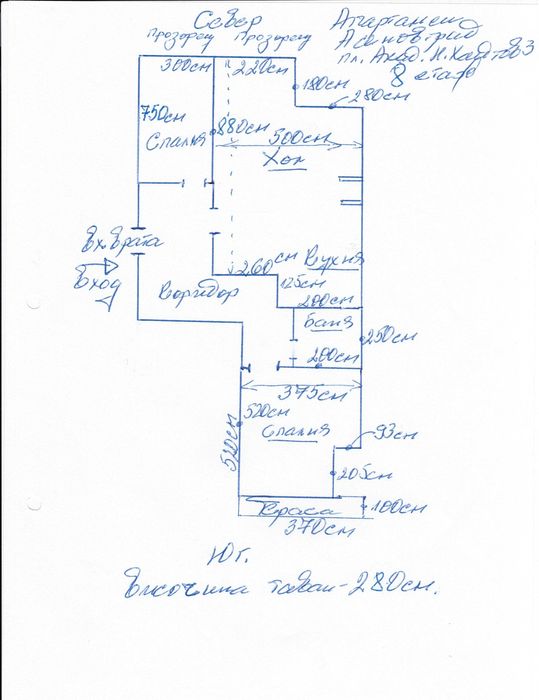 Север
Апартамент
Прозорец Прозорец
Асеновград
пл. Акад. Н. Хайтов 3
8 етаж
300см
220см
180см
280см
750см
880см
500см
Спалня
Хол
Вх. Врата
Вход
260см
Кухня
Коридор
125см
200см
Баня
250см
200см
375см
520см
Спалня
93см
520см
205см
Тераса
100см
370см
Юг.
Височина таван - 280см.